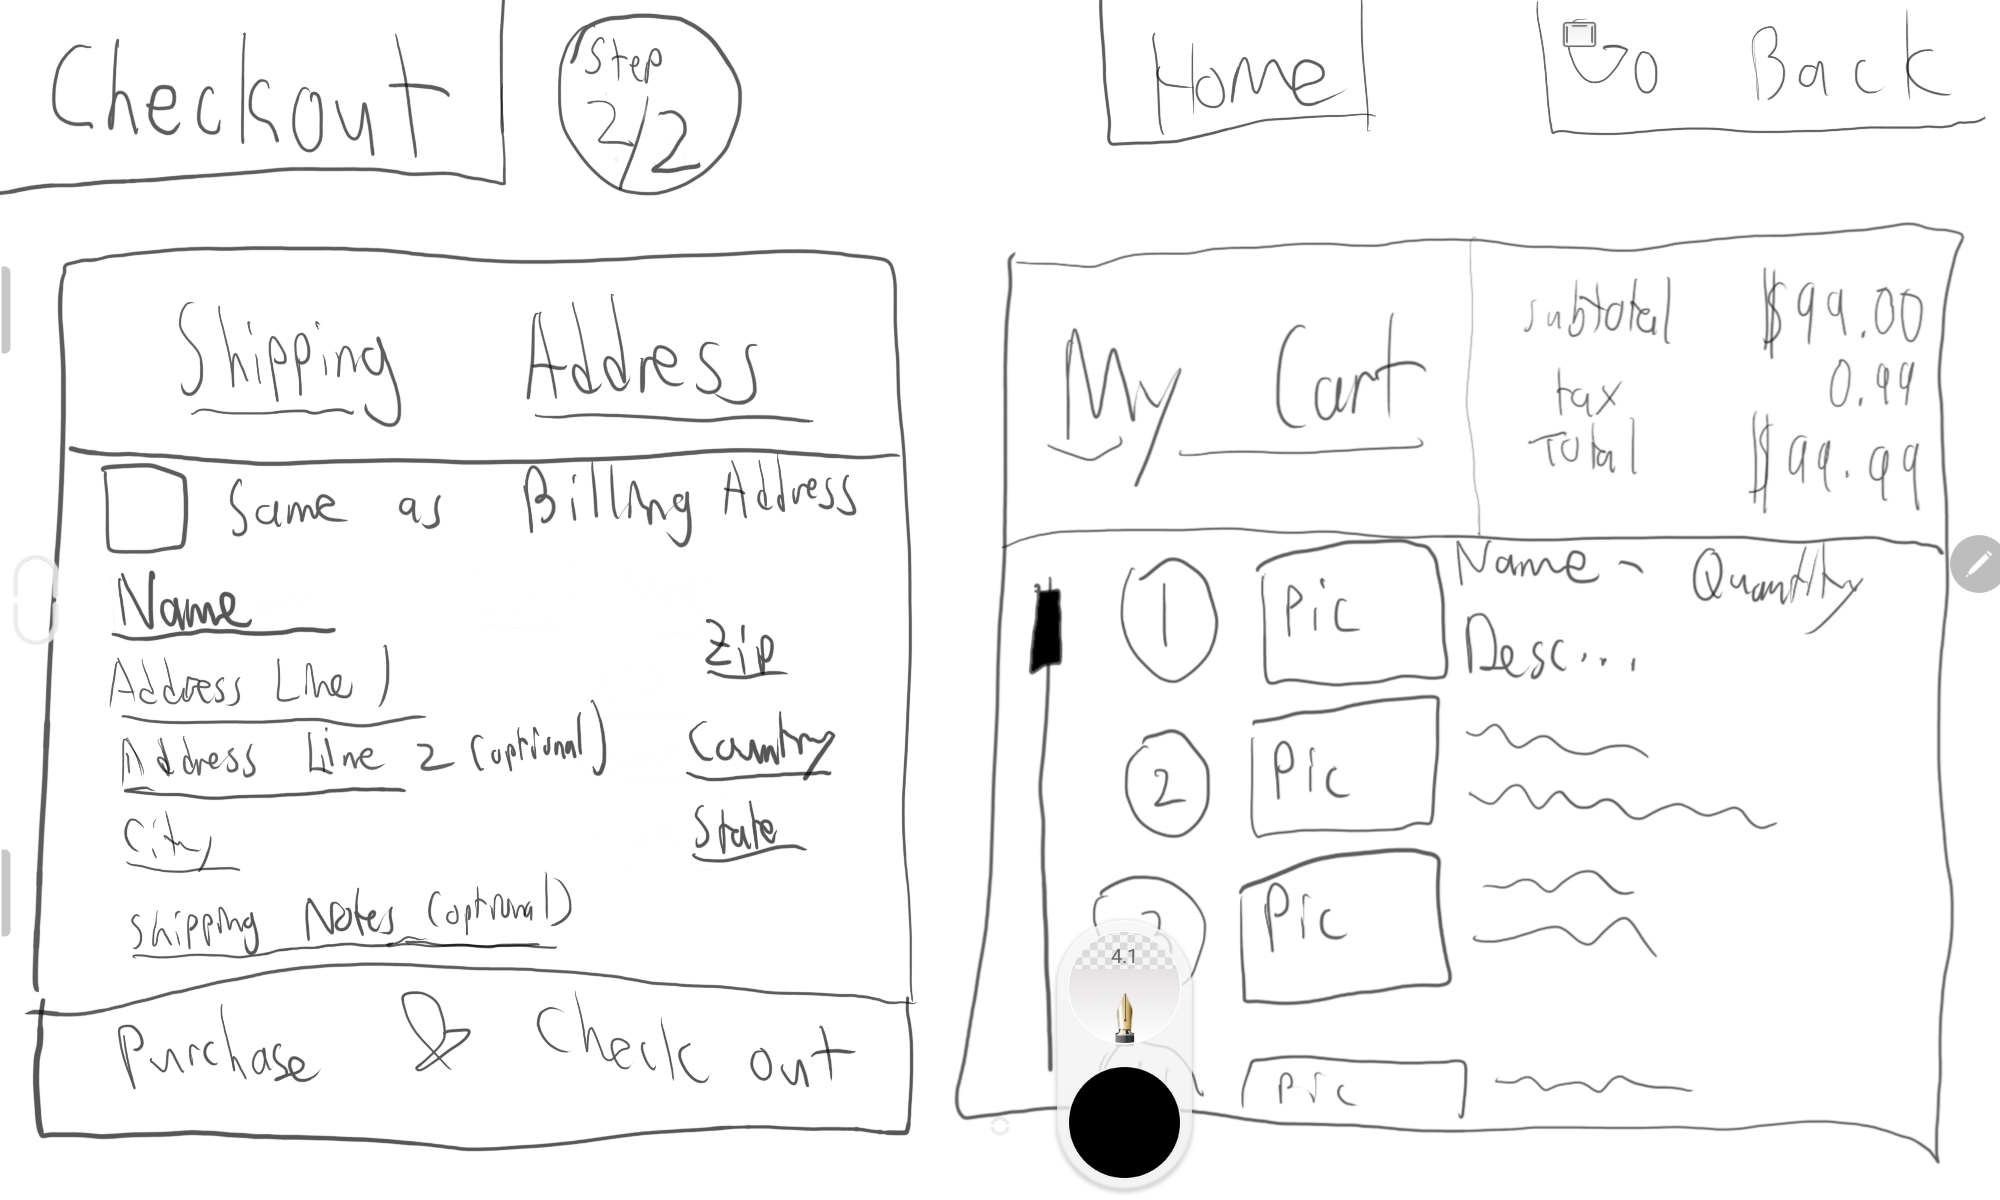 Checkout
Step
2/2
Home
Go Back
Shipping Address
Same as Billing Address
Name
Address Line 1
Address Line 2 (optional)
City
Shipping Notes (optional)
Zip
Country
State
Purchase & Check out
My Cart
subtotal $99.00
tax 0.99
Total $99.99
1 Pic Name - Quantity
Desc...
2 Pic
Pic
4.1
Pic